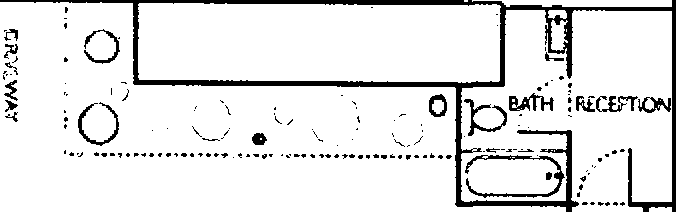 DRIVEWAY
BATH
RECEPTION